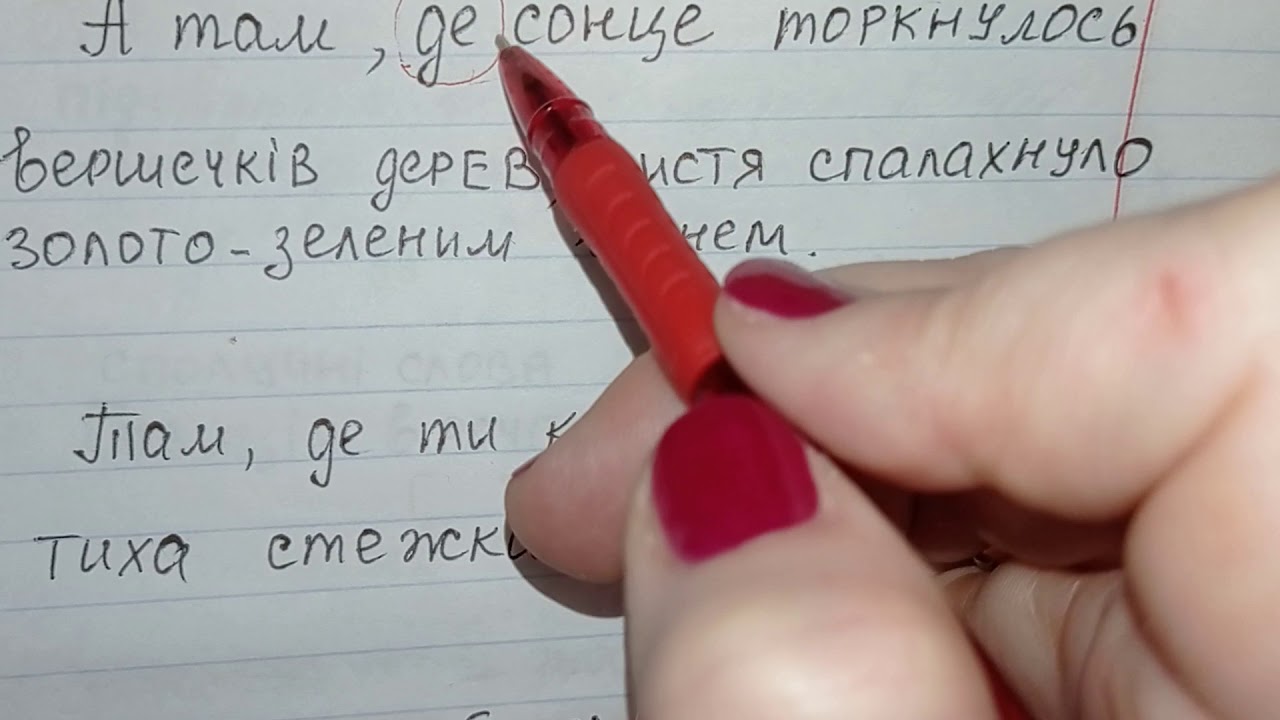 А там, де сонце торкнулось
вершечків дерев, спалахнуло
золото-зеленим
Там, де ти
тиха